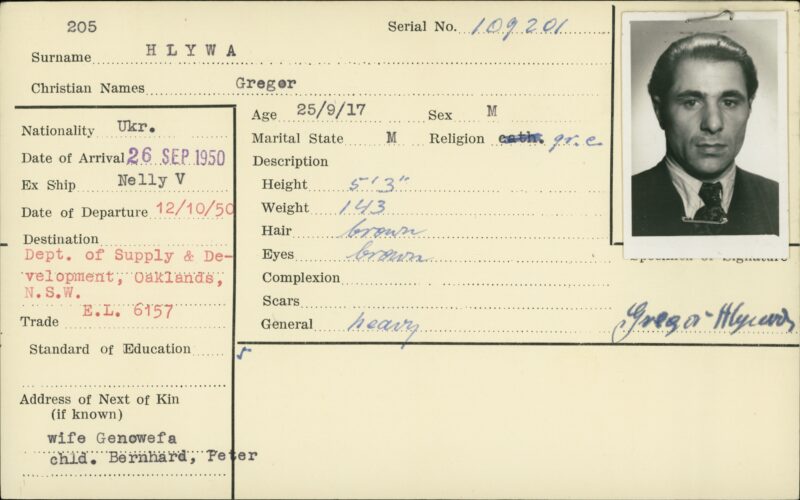 205
Serial No. 109201
Surname HLYWA
Christian Names Gregor
Nationality Ukr.
Date of Arrival 26 SEP 1950
Ex Ship Nelly V
Date of Departure 12/10/50
Destination
Dept. of Supply & De-
velopment, Oaklands,
N.S.W.
E.L. 6157
Trade
Standard of Education
Address of Next of Kin
(if known)
wife Genowefa
chld. Bernhard, Peter
Age 25/9/17 Sex M
Marital State M Religion cath. gr.c.
Description
Height 5'3"
Weight 143
Hair brown
Eyes brown
Complexion
Scars
General heavy
Specimen of Signature
Gregor Hlywa